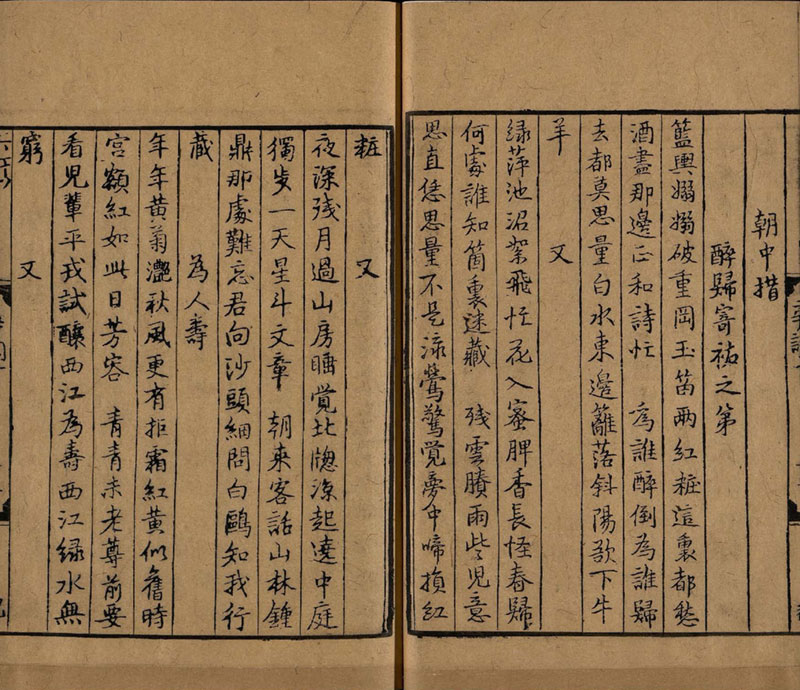 朝中措
醉歸寄祐之第
籃輿嫋嫋破重岡玉笛兩紅粧這裏都愁
酒盡那邊正和詩忙　為誰醉倒為誰歸
去都莫思量白水東邊籬落斜陽欲下牛
羊　又
绿萍池沼絮飛忙花入蜜脾香長怪春歸
何處誰知箇裏迷藏　残雲賸雨些児意
思直恁思量不是流鶯驚覺夢中啼損紅
粧　又
夜深残月過山房睡覺北牕涼起遶中庭
獨步一天星斗文章　朝来客話山林鍾
鼎那處難忘君向沙頭細問白鷗知我行
蔵　為人壽
年年黄菊灧秋風更有拒霜紅黄似舊時
宮額紅如此日芳容　青青未老尊前要
看児輩平戎試釀西江為壽西江绿水無
窮　又